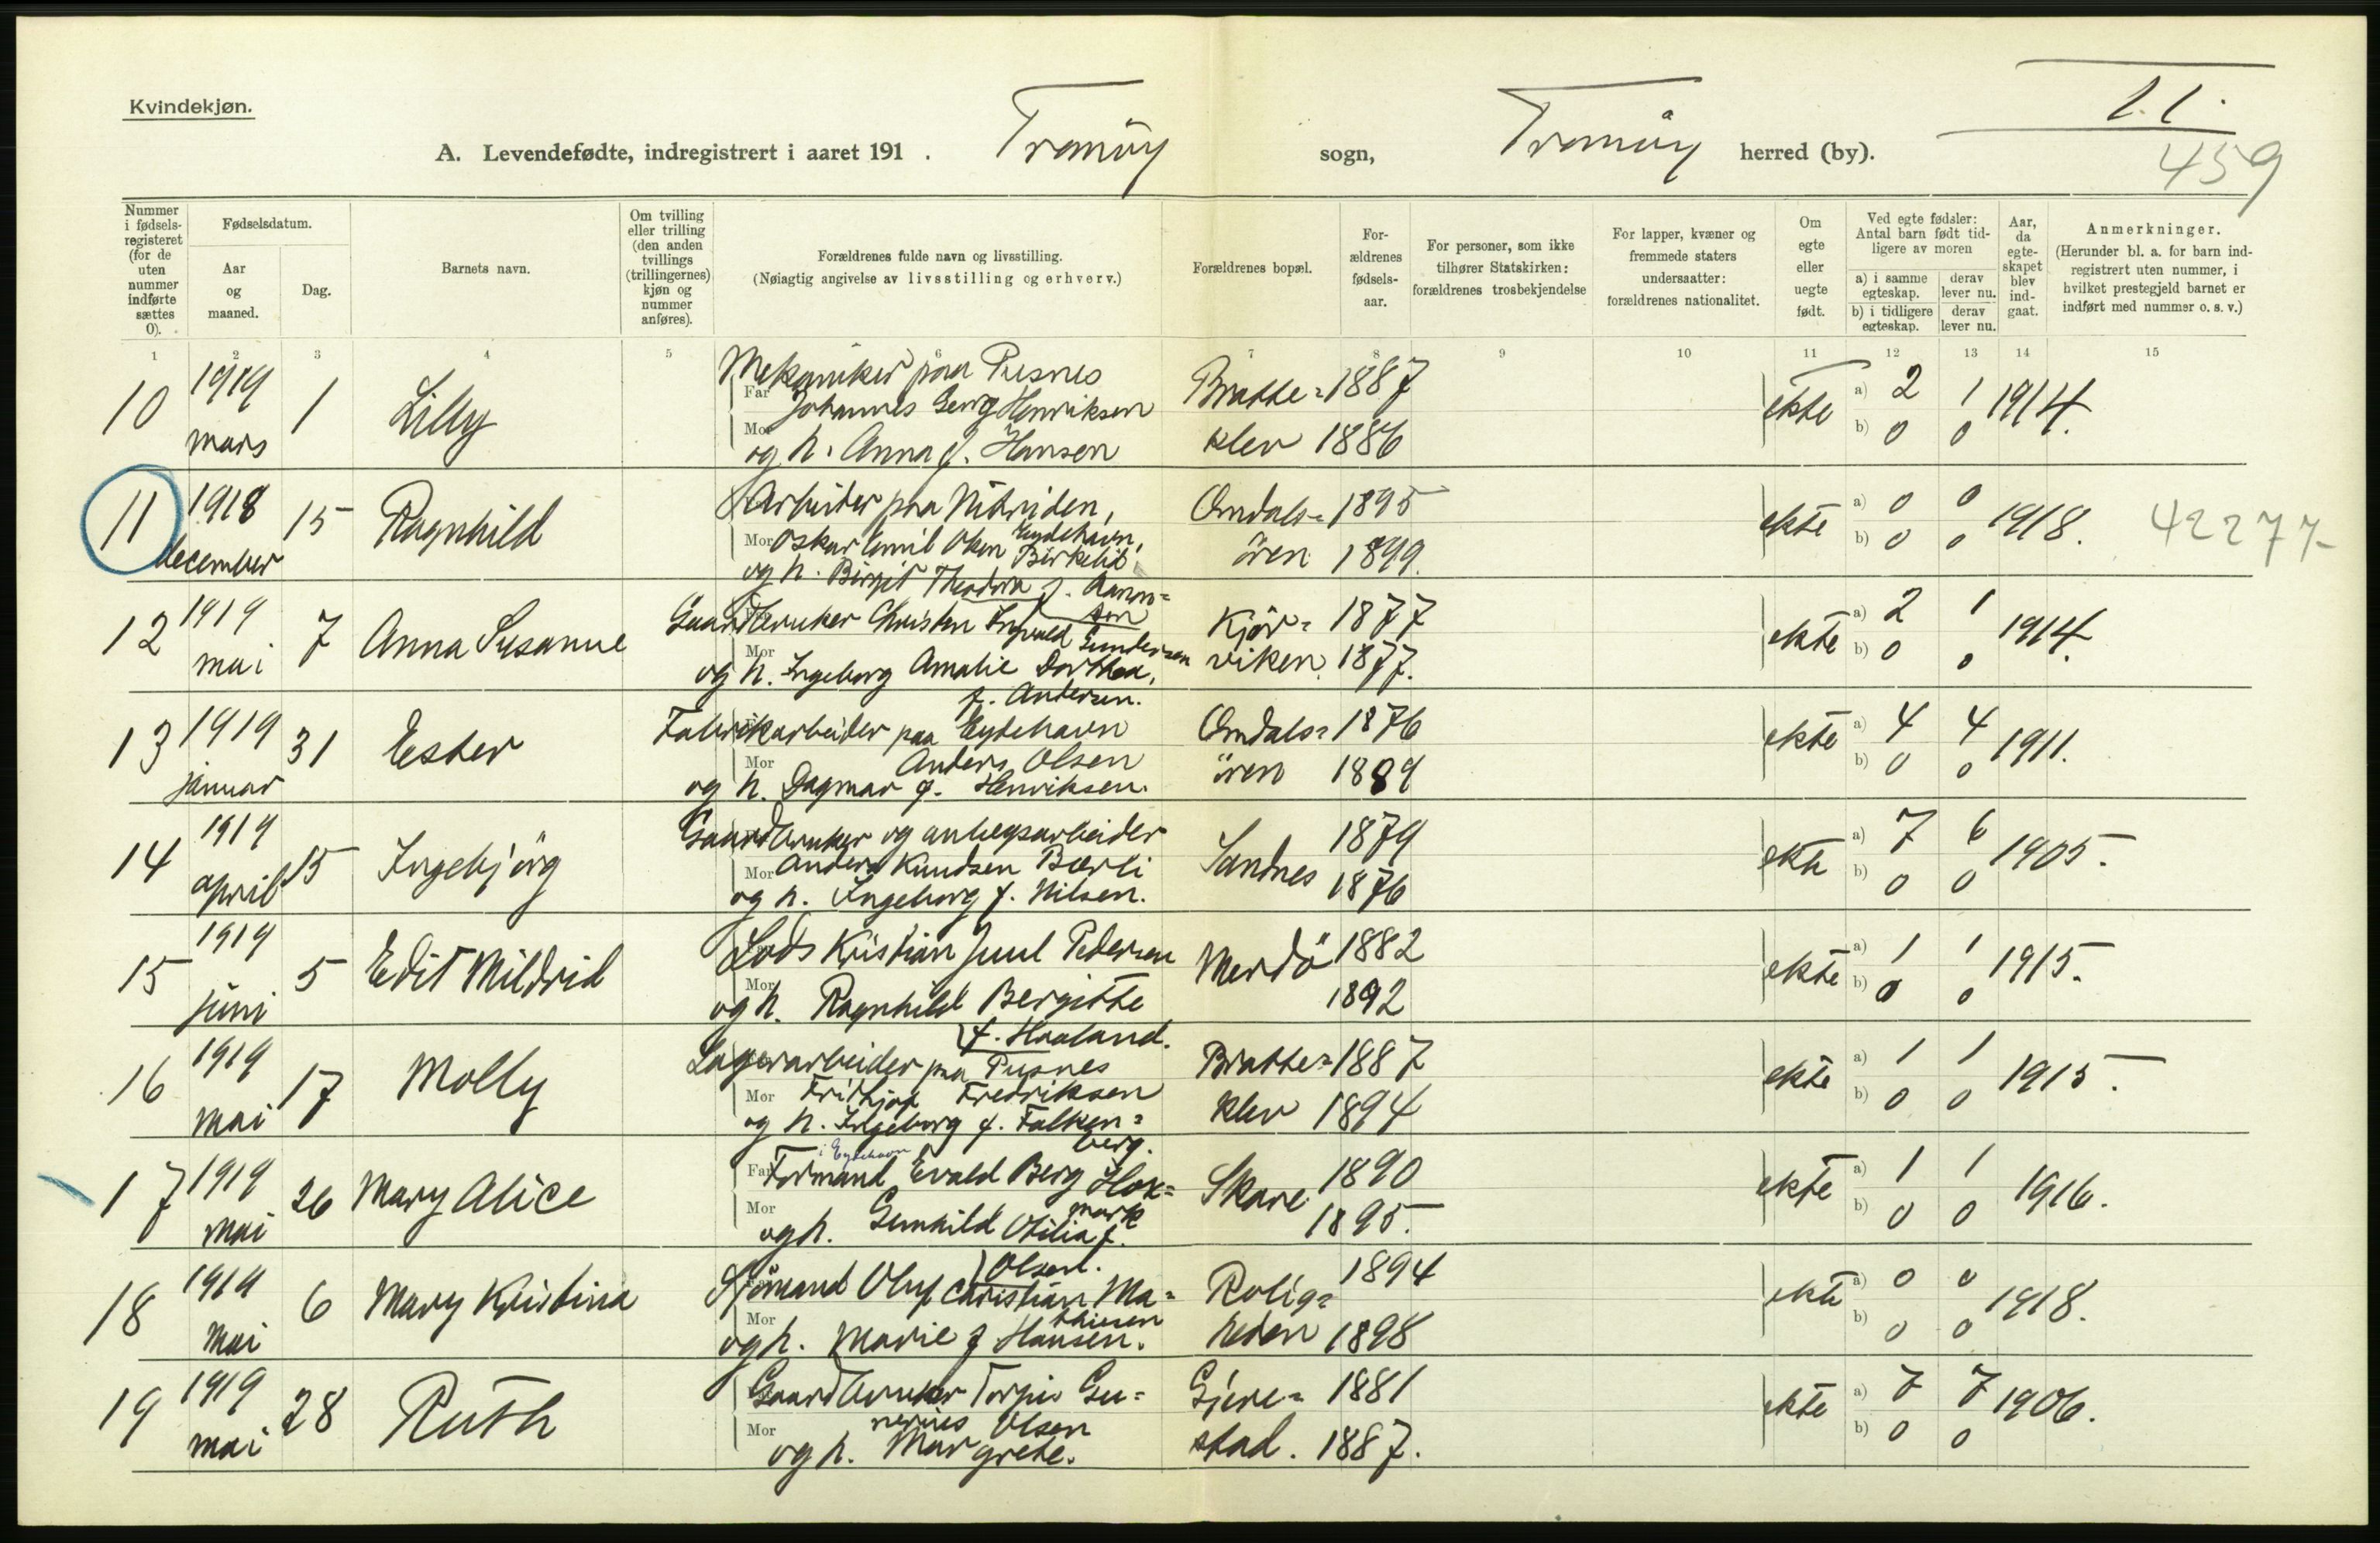 Kvindekjøn.
1.1.
459
A. Levendefødte, indregistrert i aaret 191 . Tromöy sogn, Tromöy herred (by).
Nummer i fødsels-registeret (for de uten nummer indførte sættes 0).
Fødselsdatum.
Aar og maaned.
Dag.
Barnets navn.
Om tvilling eller trilling (den anden tvillings (trillingernes) kjøn og nummer anføres).
Forældrenes fulde navn og livsstilling.
(Nøiagtig angivelse av livsstilling og erhverv.)
Forældrenes bopæl.
For-ældrenes fødsels-aar.
For personer, som ikke tilhører Statskirken: forældrenes trosbekjendelse
For lapper, kvæner og fremmede staters undersaatter: forældrenes nationalitet.
Om egte eller uegte født.
Ved egte fødsler: Antal barn født tid-ligere av moren
a) i samme egteskap.
derav lever nu.
b) i tidligere egteskap.
derav lever nu.
Aar, da egte-skapet blev ind-gaat.
Anmerkninger.
(Herunder bl. a. for barn ind-registrert uten nummer, i hvilket prestegjeld barnet er indført med nummer o. s. v.)
1 2 3 4 5 6 7 8 9 10 11 12 13 14 15
10 1919 mars 1 Lilly
Mekaniker paa Pusnes
Far Johannes Georg Henriksen
Mor og h. Anna f. Hansen
Bratte=klev 1887 1886 ekte a) 2 1 b) 0 0 1914.
11 1918 december 15 Ragnhild
Arbeider paa Nitriden, Eydehavn,
Mor Oskar Emil Olsen Birkelid
og h. Birgit Theodora f. Aanon=sen
Omdals=ören 1895 1899. ekte a) 0 0 b) 0 0 1918. 42277-
12 1919 mai 7 Anna Susanne
Gaardbruker Christen Ingvald Gundersen
Mor og h. Ingeborg Amalie Dorthea,
f. Andersen.
Kjör=viken. 1877 1877. ekte a) 2 1 b) 0 0 1914.
13 1919 januar 31 Ester
Fabrikarbeider paa Eydehavn
Mor Anders Olsen
og h. Dagmar f. Henriksen.
Omdals=ören 1876 1889 ekte a) 4 4 b) 0 0 1911.
14 1919 april 15 Ingebjörg
Gaardbruker og anlegsarbeider
Mor Anders Knudsen Bærli
og h. Ingeborg f. Nilsen.
Sandnes 1879 1876 ekte a) 7 6 b) 0 0 1905.
15 1919 juni 5 Edit Mildrid
Lods Kristian Juul Pedersen
Mor og h. Ragnhild Bergitte
f. Haaland.
Merdö 1882 1892 ekte a) 1 1 b) 0 0 1915.
16 1919 mai 17 Molly
Lagerarbeider paa Pusnes
Mor Frithjof Fredriksen
og h. Ingeborg f. Falken=berg.
Bratte=klev 1887 1894 ekte a) 1 1 b) 0 0 1915.
17 1919 mai 26 Mary Alice
i Eydehavn
Far Formand Evald Berg Hok=mark
Mor og h. Gunhild Otilia f. Olsen.
Skare 1890 1895. ekte a) 1 1 b) 0 0 1916.
18 1919 mai 6 Mary Kristina
Sjömand Oluf Christian Ma=thiesen
Mor og h. Marie f Hansen.
Rolig=heden 1894 1898 ekte a) 0 0 b) 0 0 1918.
19 1919 mai 28 Ruth
Gaardbruker Torgius Gu=nerius Olsen
Mor og h. Margrete.
Gjere=stad. 1881 1887. ekte a) 7 7 b) 0 0 1906.